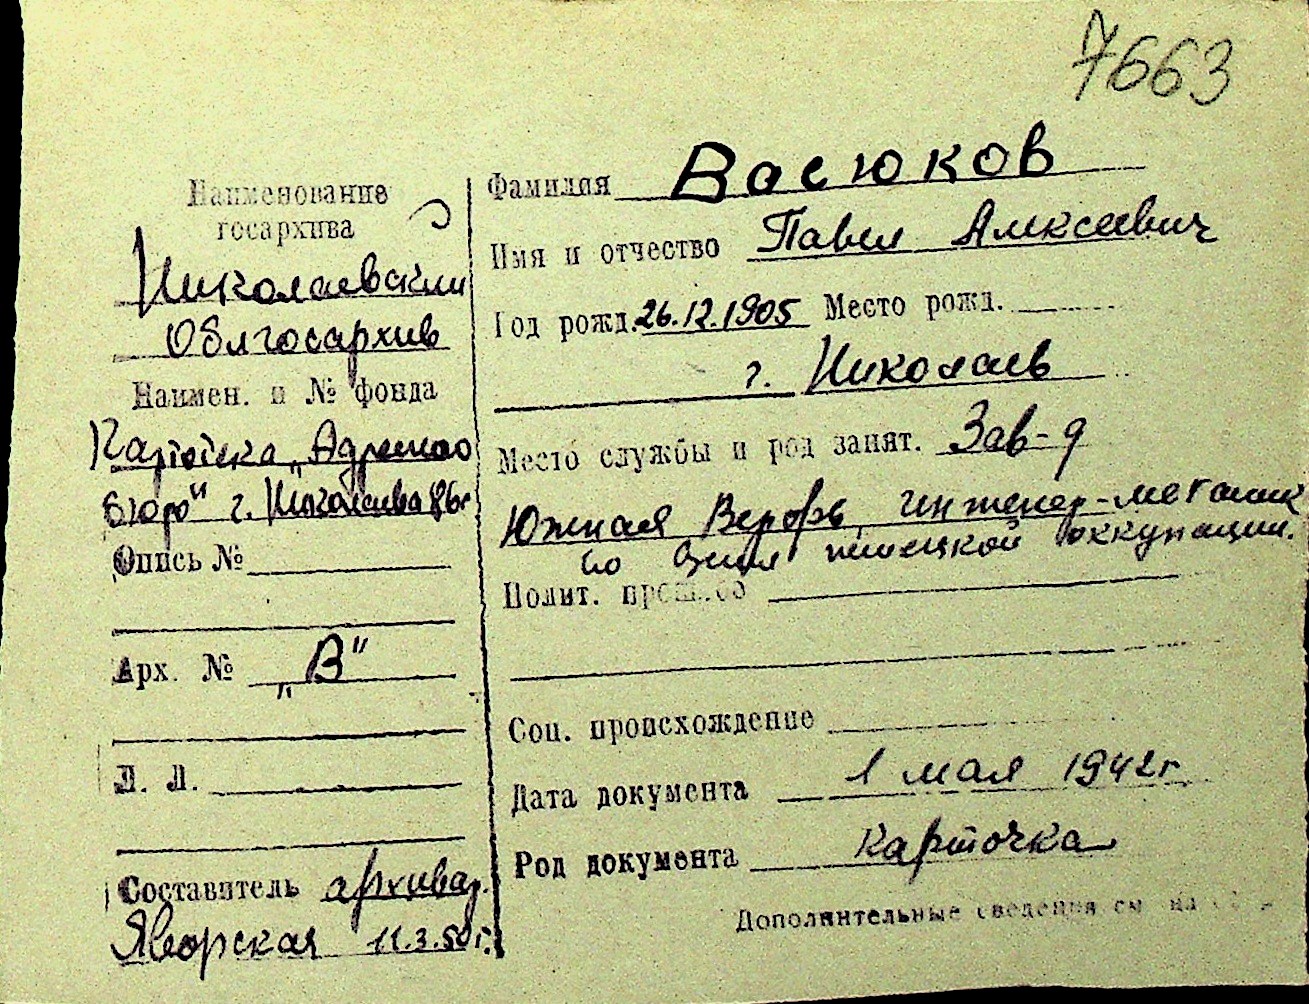 7663
Наименование
госархива
Николаевский
Облгосархив
Наимен. и № фонда
Картотека „Адресно
бюро" г. Николаева
Опись №
Арх. № „В"
Л. Л.
Составитель архивар.
Яворская 11.3.50г.
Фамилия Васюков
Имя и отчество Павел Алексеевич
Год рожд. 26.12.1905 Место рожд.
г. Николаев
Место службы и род занят. Зав-д
Южная Верфь, инженер-механик
во время немецкой оккупации.
Полит.
Соц. происхождение
Дата документа 1 мая 1942г
Род документа карточка
Дополнительные сведения см. на